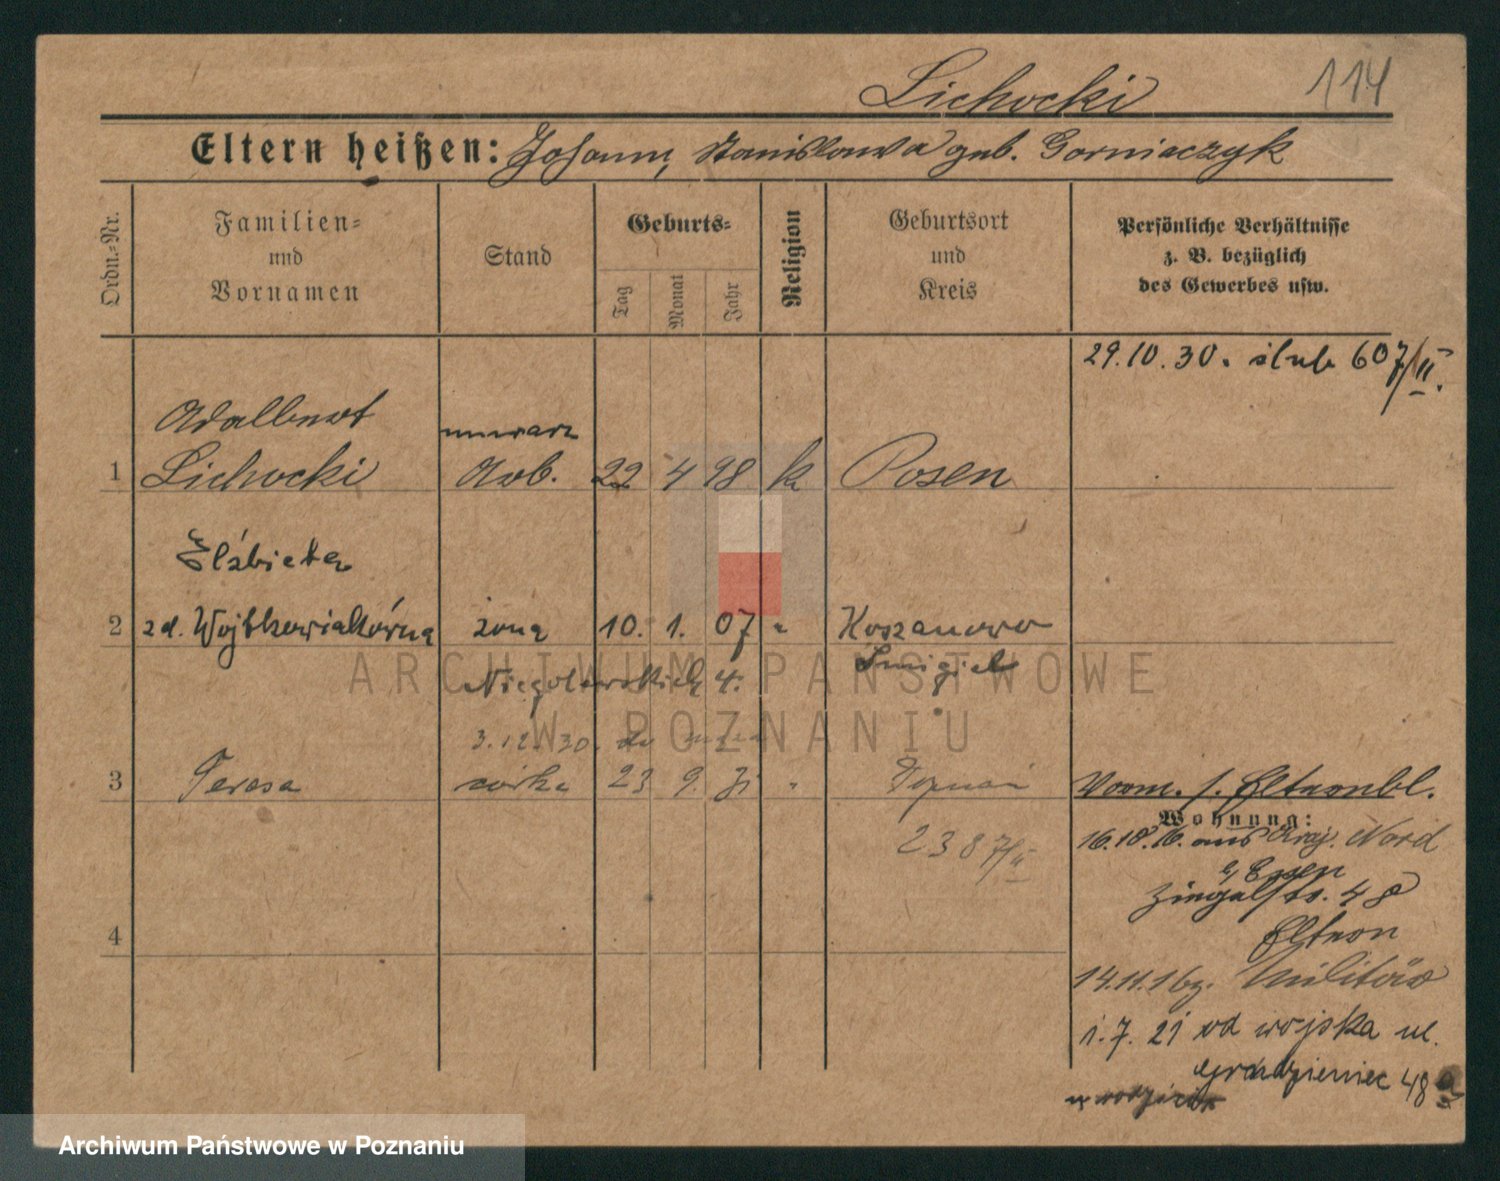 114
Lichocki
Eltern heißen: Johann, Stanislawa geb. Gorniaczyk
Ordn.-Nr.
Familien- und Vornamen
Stand
Geburts-
Tag
Monat
Jahr
Religion
Geburtsort und Kreis
Persönliche Verhältnisse z. B. bezüglich des Gewerbes usw.
29.10.30. ślub 607/II.
Adalbert
1 Lichocki Arb. 22 4 98 k Posen
Elżbieta
2 zd. Wojtkowiakówna żona 10. 1. 07 " Koszanowo
Śmigiel
Niegolewskich 4.
3.12.30.
3 Teresa córka 23 9. 31 " Poznań
2387/II
Vorm. s. Elternbl.
Wohnung:
16.10.16. aus Nord
b/ Essen
Ziegelstr. 48
Eltern
14.11.16 z. Militär
1.7.21 od wojska ul.
Grudzieniec 48
4
ARCHIWUM PAŃSTWOWE
W POZNANIU
Archiwum Państwowe w Poznaniu